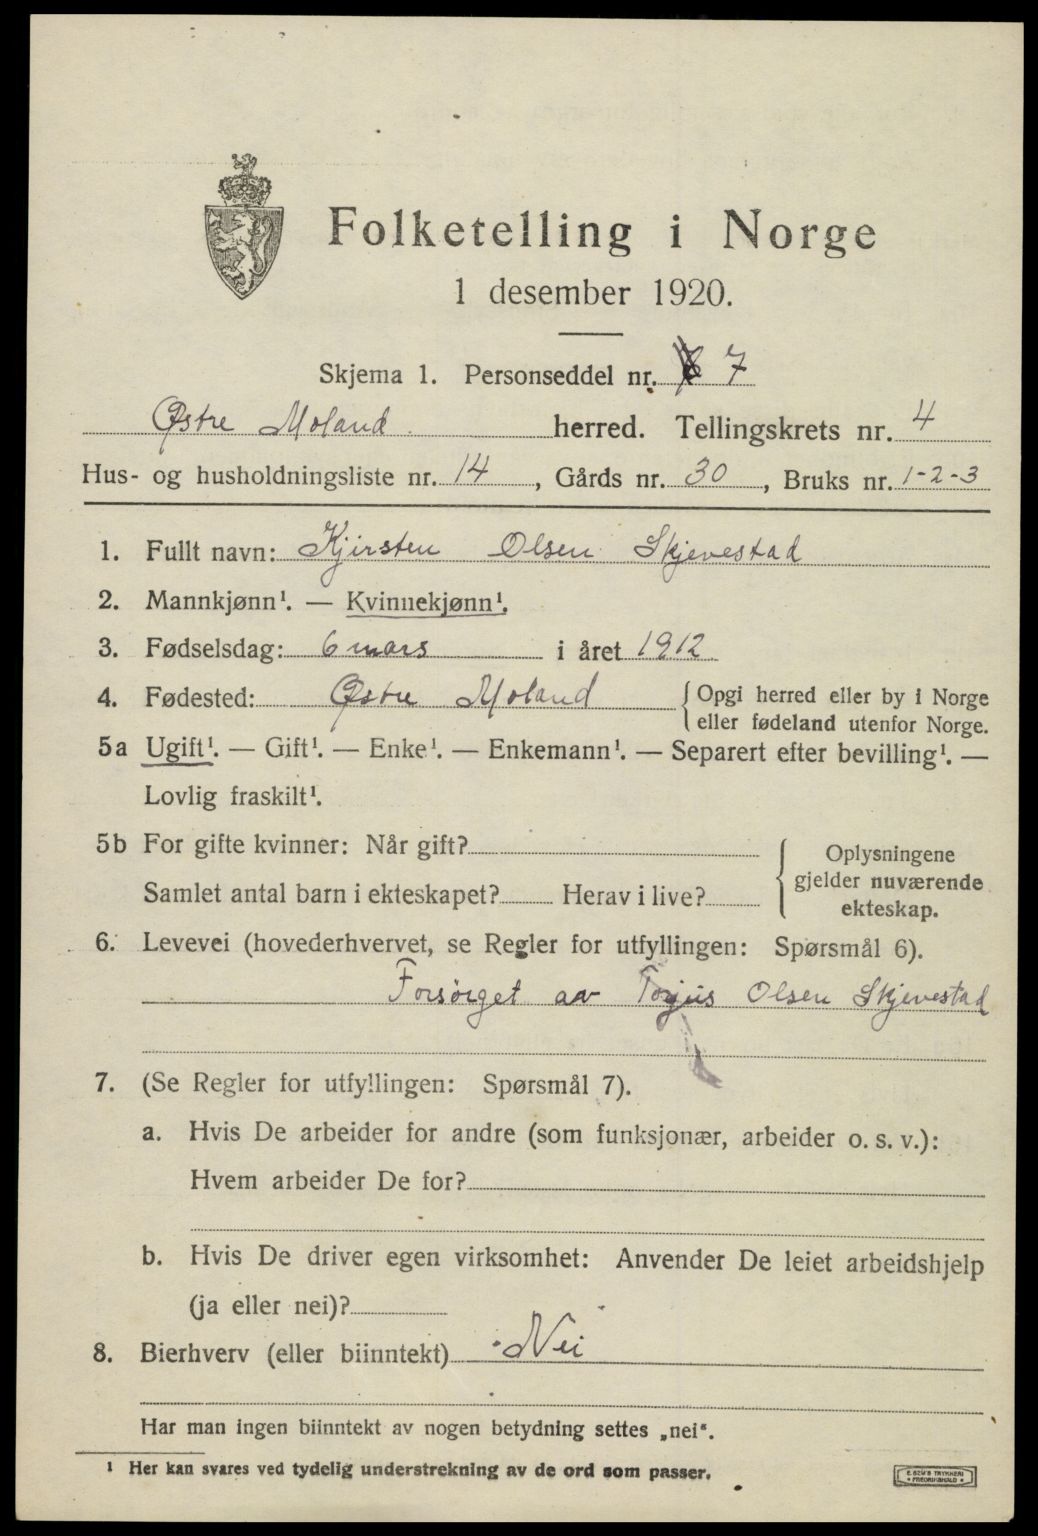 Folketelling i Norge
1 desember 1920.
Skjema 1. Personseddel nr. 7
Østre Moland herred. Tellingskrets nr. 4
Hus- og husholdningsliste nr. 14, Gårds nr. 30, Bruks nr. 1-2-3
1. Fullt navn: Kjirsten Olsen Skjevestad
2. Mannkjønn¹. — Kvinnekjønn¹.
3. Fødselsdag: 6 mars i året 1912
4. Fødested: Østre Moland Opgi herred eller by i Norge
eller fødeland utenfor Norge.
5a Ugift¹. — Gift¹. — Enke¹. — Enkemann¹. — Separert efter bevilling¹. —
Lovlig fraskilt¹.
5b For gifte kvinner: Når gift?
Samlet antal barn i ekteskapet? Herav i live?
Oplysningene
gjelder nuværende
ekteskap.
6. Levevei (hovederhvervet, se Regler for utfyllingen: Spørsmål 6).
Forsörget av Torjus Olsen Skjevestad
7. (Se Regler for utfyllingen: Spørsmål 7).
a. Hvis De arbeider for andre (som funksjonær, arbeider o. s. v.):
Hvem arbeider De for?
b. Hvis De driver egen virksomhet: Anvender De leiet arbeidshjelp
(ja eller nei)?
8. Bierhverv (eller biinntekt) Nei
Har man ingen biinntekt av nogen betydning settes „nei“.
¹ Her kan svares ved tydelig understrekning av de ord som passer.
E. SEM'S TRYKKERI
FREDRIKSHALD